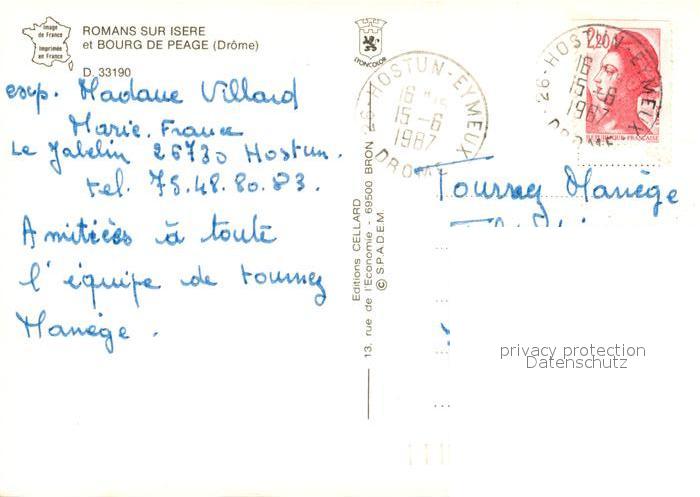 Image
de France
Imprimée
en France
ROMANS SUR ISERE
et BOURG DE PEAGE (Drôme)
D. 33190
LYONCOLOR
exp. Madame Villard
Marie. France
Le Jabelin 26730 Hostun.
tel. 75.48.80.83.
Amitiées à toute
l'équipe de tournez
Manège.
Editions CELLARD
13, rue de l'Economie - 69500 BRON
© S.P.A.D.E.M.
26-HOSTUN-EYMEUX
16 H
15-6
1987
DROME
2,20
REPUBLIQUE FRANÇAISE
26-HOSTUN-EYMEUX
16
15-6
1987
DROME
Tournez Manège
privacy protection
Datenschutz